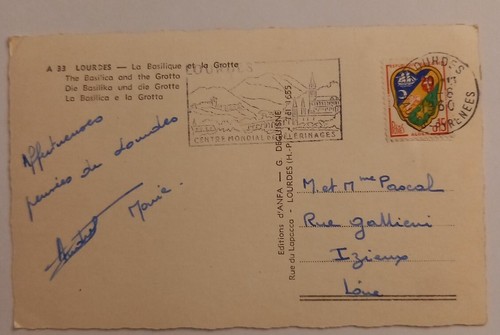 A 33 LOURDES — La Basilique et la Grotte
The Basilica and the Grotto
Die Basilika und die Grotte
La Basilica e la Grotta
LOURDES
CENTRE MONDIAL DE PELERINAGES
LOURDES
60
PYRENEES
15
Affectueuses
pensées de Lourdes
Marie.
Editions d'ANFA — G. DEGUISNE
Rue du Lapacca - LOURDES (H.-P.) - Tél. 1655
M. et Mme Pascal
Rue Gallieni
Izieux
Loire